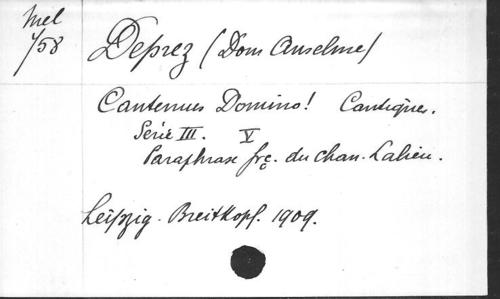 Mel
1/58
Deprez (Dom Anselme)
Cantemus Domino! Cantiques.
Série III. V
Paraphrase frç. du chan. Lalieu.
Leipzig. Breitkopf. 1909.